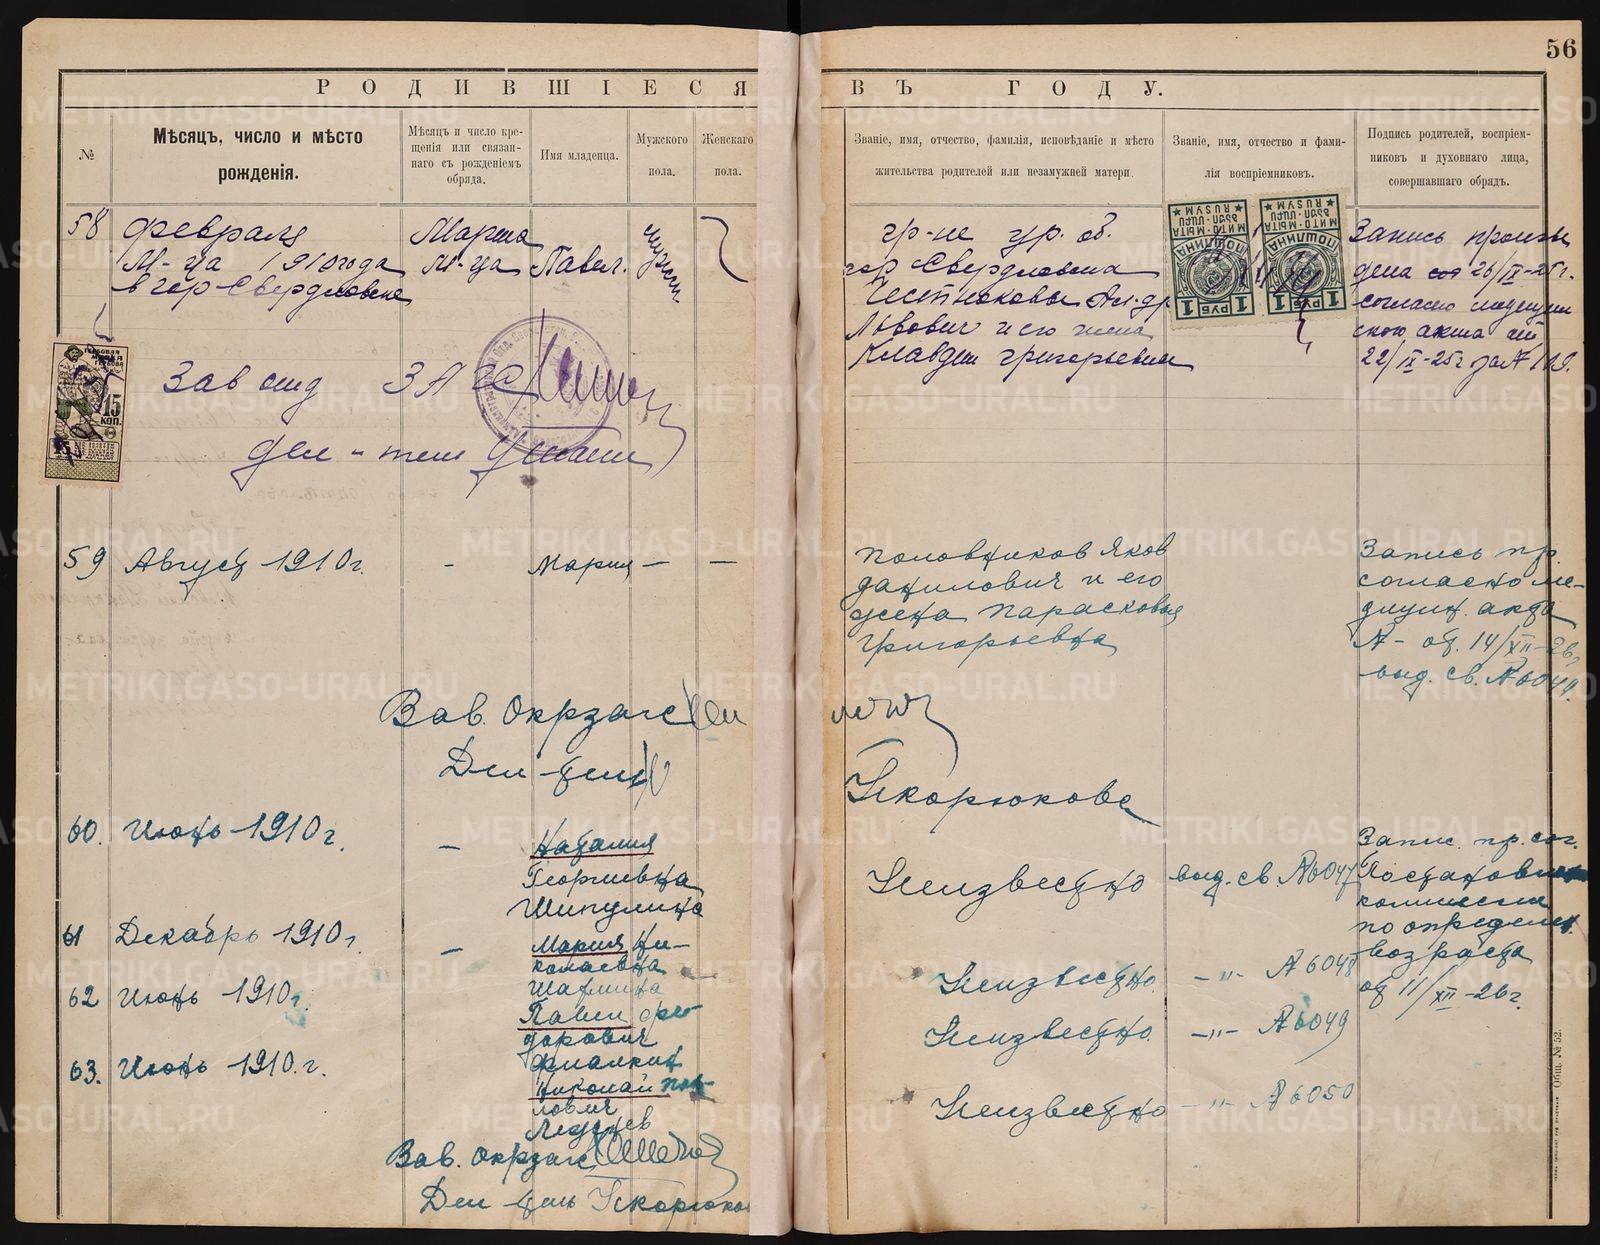 56
РОДИВШІЕСЯ ВЪ ГОДУ.
№
Мѣсяцъ, число и мѣсто
рожденія.
Мѣсяцъ и число кре-
щенія или связан-
наго съ рожденіемъ
обряда.
Имя младенца.
Мужского
пола.
Женскаго
пола.
Званіе, имя, отчество, фамилія, исповѣданіе и мѣсто
жительства родителей или незамужней матери.
Званіе, имя, отчество и фами-
лія воспріемниковъ.
Подпись родителей, воспріем-
никовъ и духовнаго лица,
совершавшаго обрядъ.
58
февраля
М-ца 1910 года
в гор Свердловске
Марта
М-ца
Павел.
гр-не ур. об.
гор Свердловска
Ал-др
Львович и его жена
Клавдия Григорьевна
Запись произве
дена 26/IX-25г.
согласно медицин
ского акта от
22/IX-25г за № 119.
ПОШЛИНА
1 РУБ 1
ПОШЛИНА
1 РУБ 1
15
КОП.
Зав ЗАГС
Дел-тель
59
Август 1910 г.
-
Мария
-
-
Половников Яков
Данилович и его
жена Парасковья
Григорьевна
Запись пр.
согласно ме-
дицин. акта
№- от. 14/XII-26г
выд. св. № 6044.
Зав. Окрзагс
Дел-тель
Искорюкова
60.
Июнь 1910 г.
-
Наталия
Георгиевна
Шипулина
Неизвестно
выд. св. № 6047
Запис. пр. сог.
Постановлен
комиссии
по определен.
возраста
от 11/XII-26г
61
Декабрь 1910 г.
-
Мария Ни-
колаевна
Неизвестно.
-"- № 6048
62
Июнь 1910 г.
Павел Фе-
дорович
Фиалкин
Неизвестно.
-"- № 6049
63.
Июнь 1910. г.
Николай Пав-
лович
Неизвестно
-"- № 6050
Зав. Окрзагс
Дел-тель Искорюкова
Общ. № 52.
METRIKI.GASO-URAL.RU